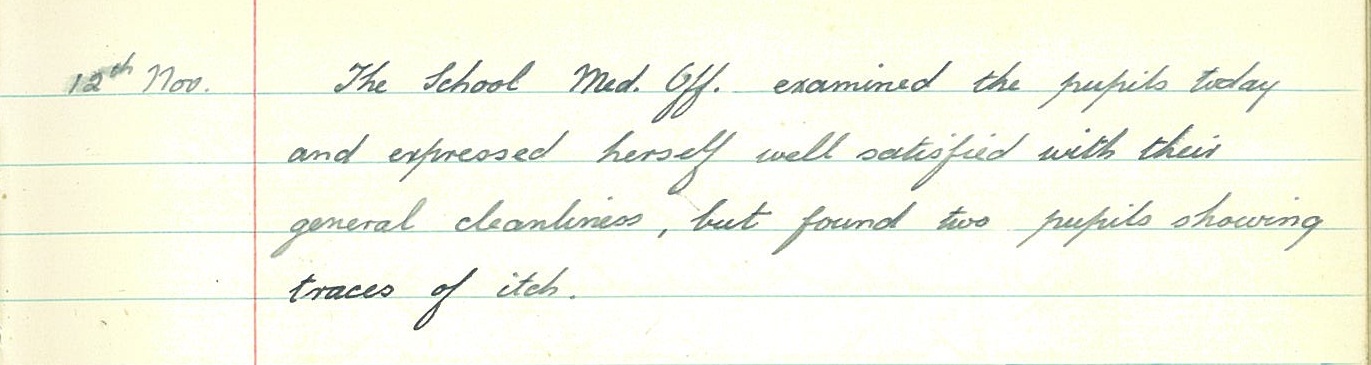 12th Nov. The School Med. Off. examined the pupils today
and expressed herself well satisfied with their
general cleanliness, but found two pupils showing
traces of itch.